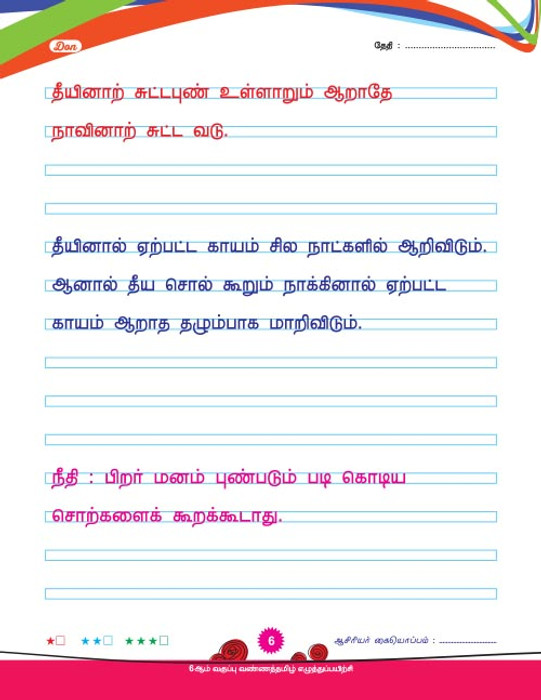 Don
தேதி : ........................................
தீயினாற் சுட்டபுண் உள்ளாறும் ஆறாதே
நாவினாற் சுட்ட வடு.
தீயினால் ஏற்பட்ட காயம் சில நாட்களில் ஆறிவிடும்.
ஆனால் தீய சொல் கூறும் நாக்கினால் ஏற்பட்ட
காயம் ஆறாத தழும்பாக மாறிவிடும்.
நீதி : பிறர் மனம் புண்படும் படி கொடிய
சொற்களைக் கூறக்கூடாது.
6
ஆசிரியர் கையொப்பம் : ........................
6-ஆம் வகுப்பு வண்ணத்தமிழ் எழுத்துப்பயிற்சி